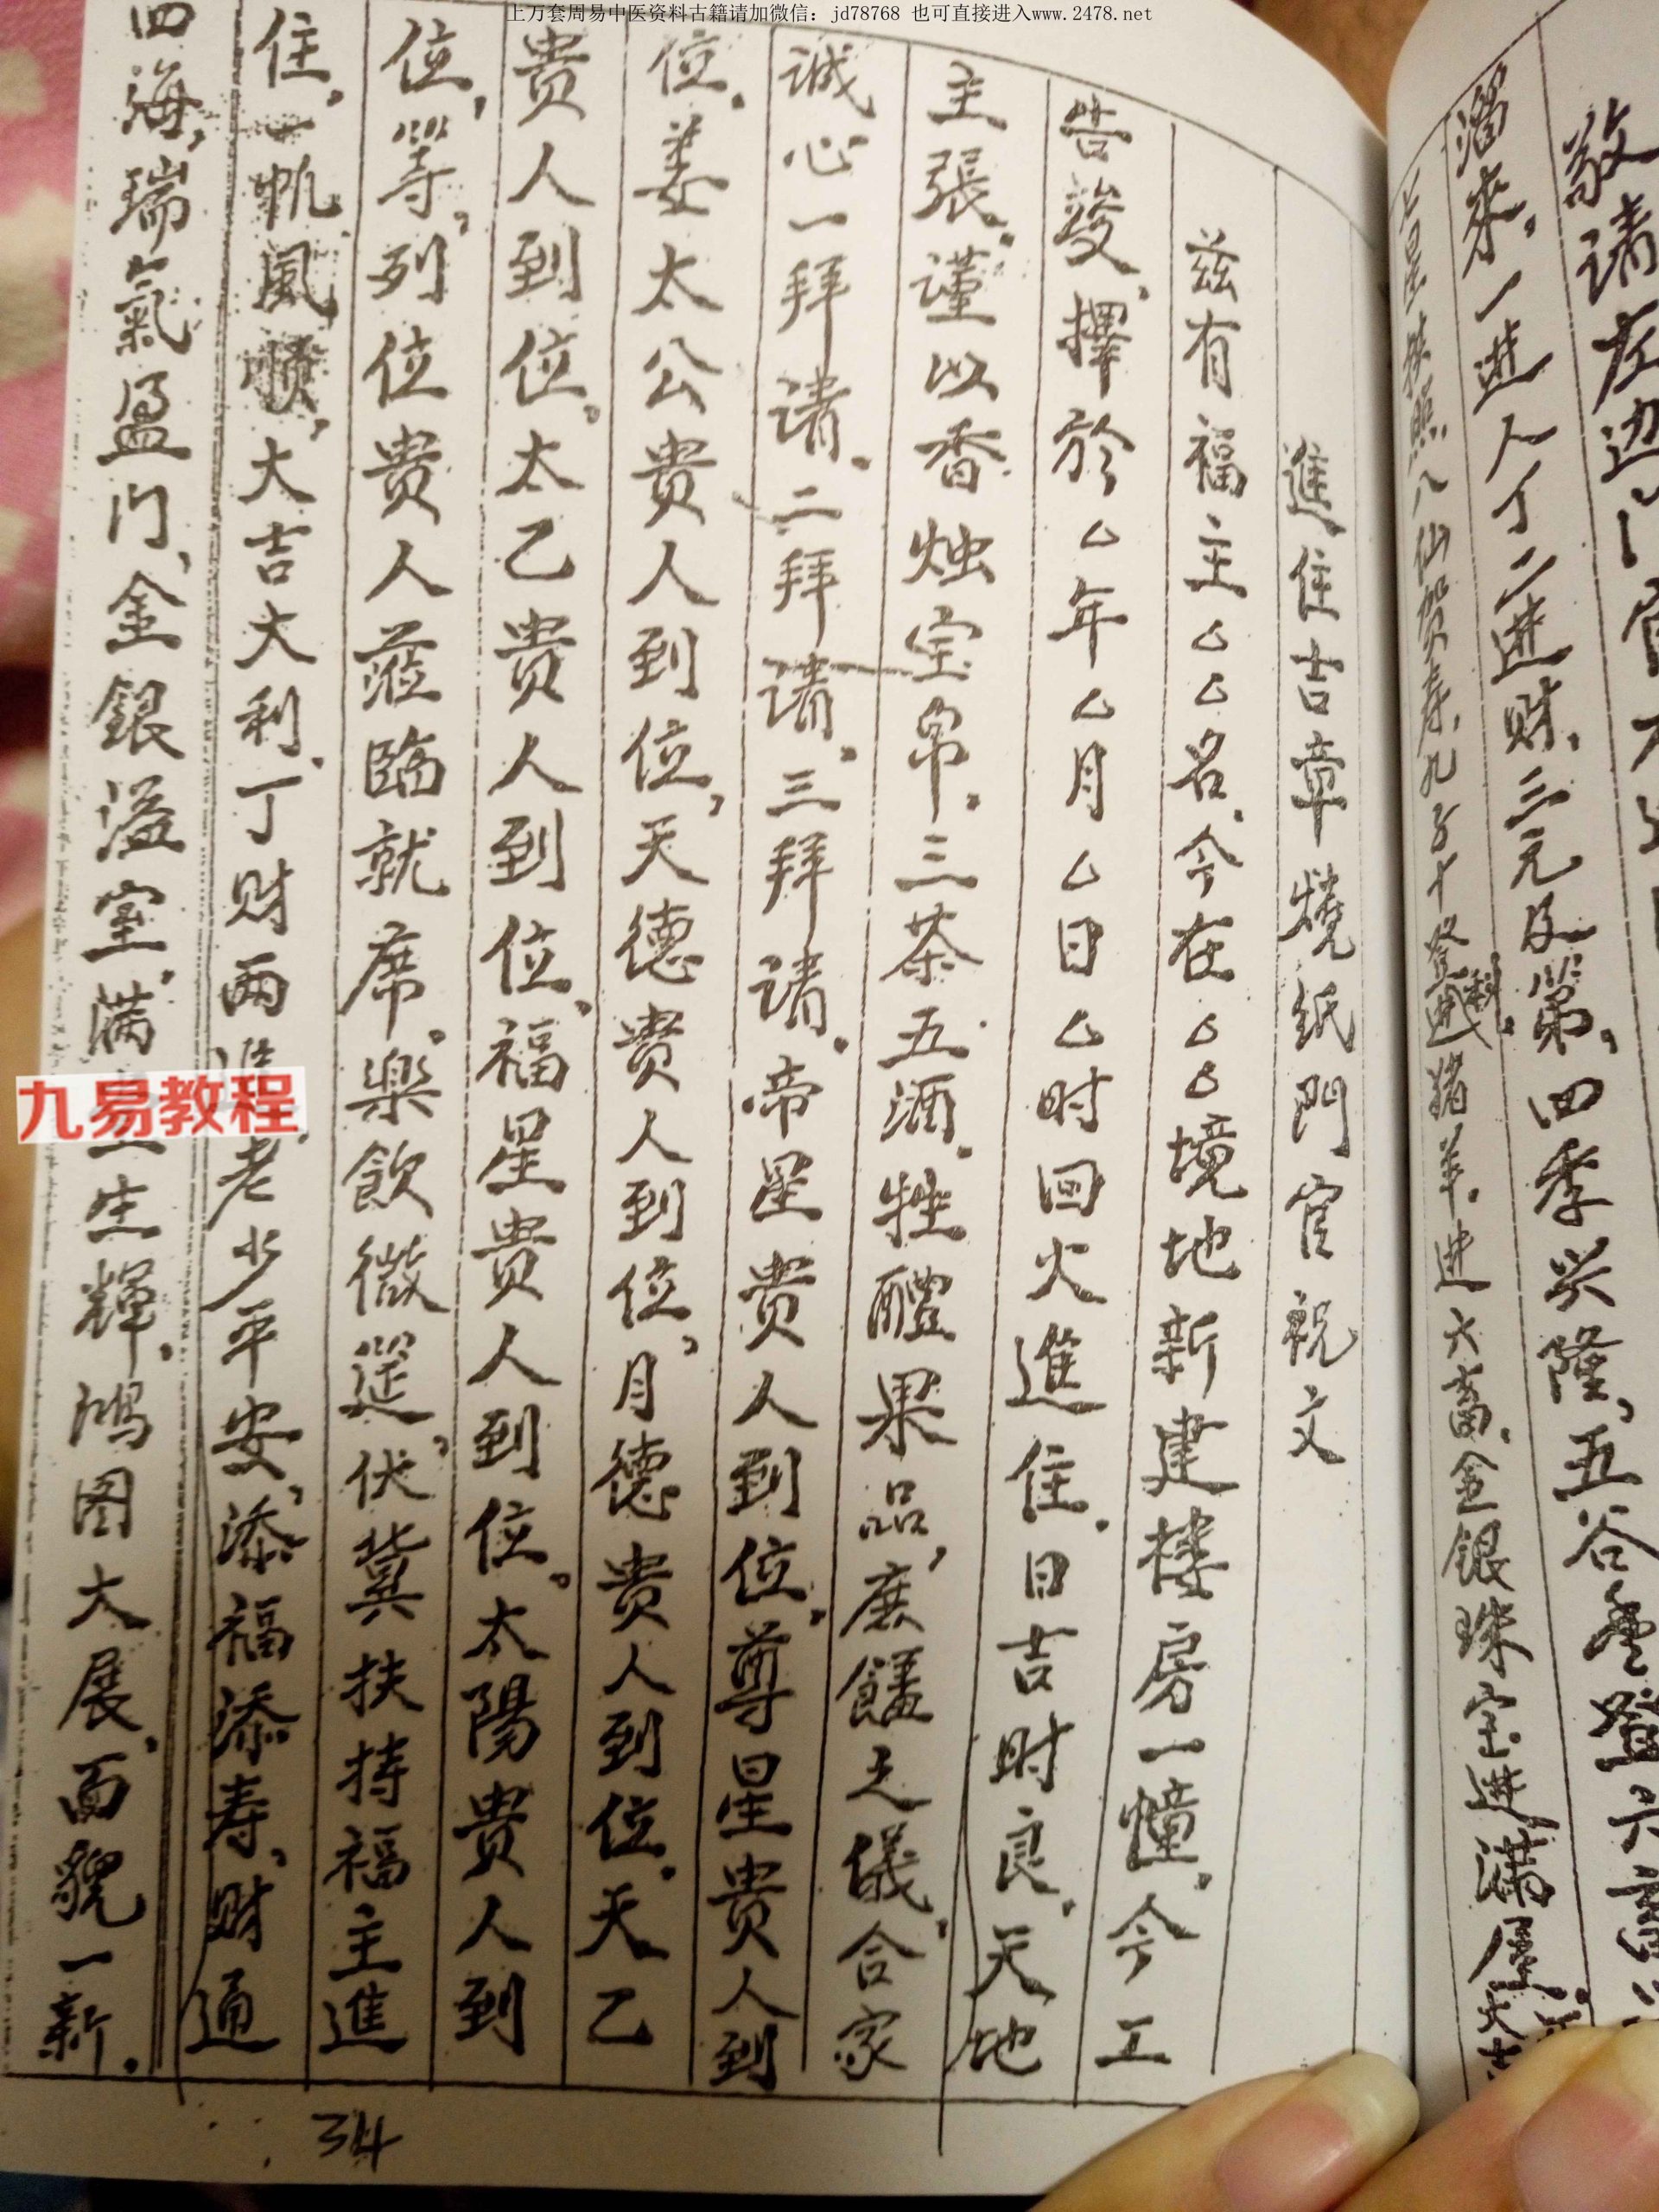 上万套周易中医资料古籍请加微信：jd78768 也可直接进入www.2478.net
敬请左边门官大
四季兴隆，五谷丰登只
来，一进人丁二进财，三元及第，
上星扶照八仙贺寿九子十登科，进猪羊，进六畜，金银珠宝进满屋
進住吉章燒紙門官祝文
兹有福主△△名、今在△△境地新建楼房一幢，今工
告竣，擇於△年△月△日△时回火進住，日吉时良，天地
主張，谨以香烛宝帛，三茶五酒，牲醴果品，庶饈之儀，合家
诚心一拜请，二拜请，三拜请，帝星贵人到位，尊星贵人到
位，姜太公贵人到位，天德贵人到位，月德贵人到位，天乙
贵人到位，太乙贵人到位，福星贵人到位，太陽贵人到
位，等，列位贵人蒞臨就席，樂飲微筵，伏冀扶持福主進
住，一帆風順，大吉大利，丁财两進，老少平安，添福添寿，财通
四海，瑞氣盈门，金銀溢室，满生輝，鸿图大展，面貌一新．
九易教程
34